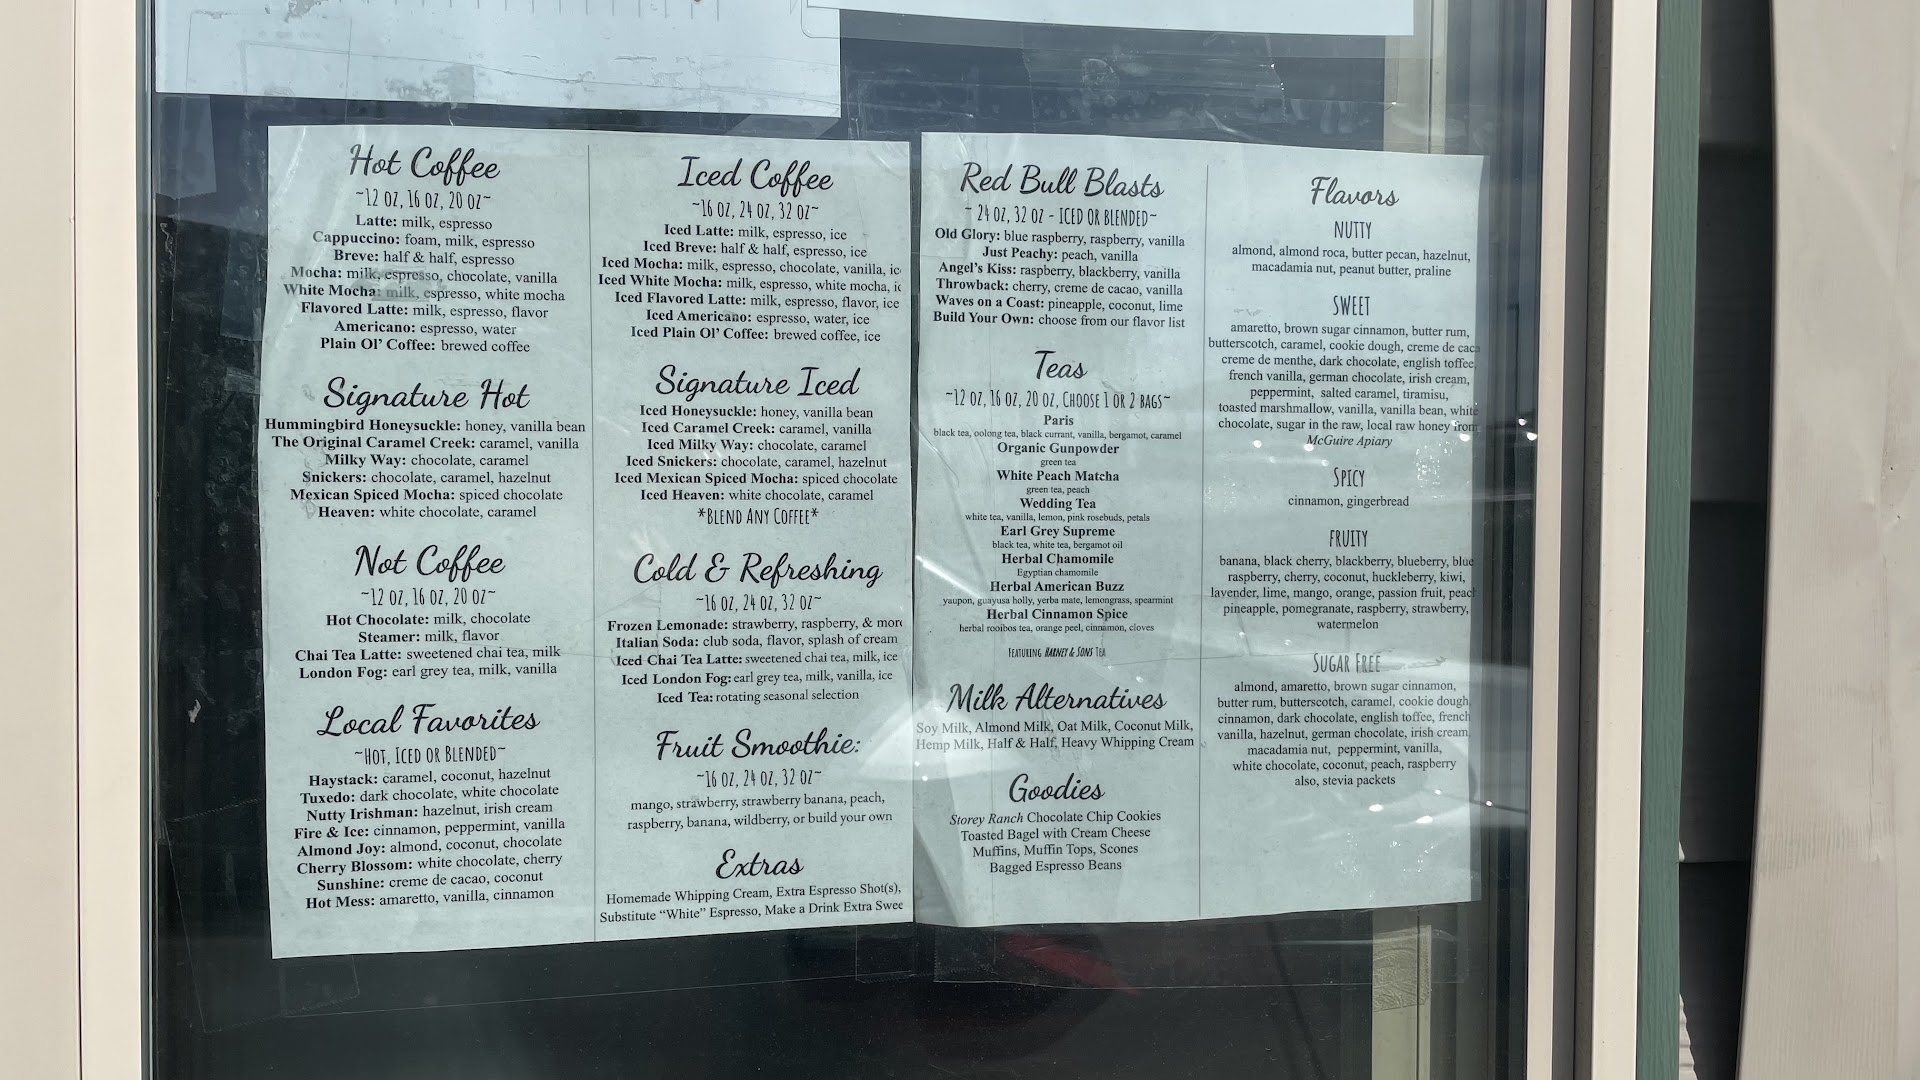 Hot Coffee
~12 oz, 16 oz, 20 oz~
Latte: milk, espresso
Cappuccino: foam, milk, espresso
Breve: half & half, espresso
Mocha: milk, espresso, chocolate, vanilla
White Mocha: milk, espresso, white mocha
Flavored Latte: milk, espresso, flavor
Americano: espresso, water
Plain Ol' Coffee: brewed coffee
Signature Hot
Hummingbird Honeysuckle: honey, vanilla bean
The Original Caramel Creek: caramel, vanilla
Milky Way: chocolate, caramel
Snickers: chocolate, caramel, hazelnut
Mexican Spiced Mocha: spiced chocolate
Heaven: white chocolate, caramel
Not Coffee
~12 oz, 16 oz, 20 oz~
Hot Chocolate: milk, chocolate
Steamer: milk, flavor
Chai Tea Latte: sweetened chai tea, milk
London Fog: earl grey tea, milk, vanilla
Local Favorites
~Hot, Iced or Blended~
Haystack: caramel, coconut, hazelnut
Tuxedo: dark chocolate, white chocolate
Nutty Irishman: hazelnut, irish cream
Fire & Ice: cinnamon, peppermint, vanilla
Almond Joy: almond, coconut, chocolate
Cherry Blossom: white chocolate, cherry
Sunshine: creme de cacao, coconut
Hot Mess: amaretto, vanilla, cinnamon
Iced Coffee
~16 oz, 24 oz, 32 oz~
Iced Latte: milk, espresso, ice
Iced Breve: half & half, espresso, ice
Iced Mocha: milk, espresso, chocolate, vanilla, ic
Iced White Mocha: milk, espresso, white mocha, ic
Iced Flavored Latte: milk, espresso, flavor, ice
Iced Americano: espresso, water, ice
Iced Plain Ol' Coffee: brewed coffee, ice
Signature Iced
Iced Honeysuckle: honey, vanilla bean
Iced Caramel Creek: caramel, vanilla
Iced Milky Way: chocolate, caramel
Iced Snickers: chocolate, caramel, hazelnut
Iced Mexican Spiced Mocha: spiced chocolate
Iced Heaven: white chocolate, caramel
*Blend Any Coffee*
Cold & Refreshing
~16 oz, 24 oz, 32 oz~
Frozen Lemonade: strawberry, raspberry, & more
Italian Soda: club soda, flavor, splash of cream
Iced Chai Tea Latte: sweetened chai tea, milk, ice
Iced London Fog: earl grey tea, milk, vanilla, ice
Iced Tea: rotating seasonal selection
Fruit Smoothie:
~16 oz, 24 oz, 32 oz~
mango, strawberry, strawberry banana, peach,
raspberry, banana, wildberry, or build your own
Extras
Homemade Whipping Cream, Extra Espresso Shot(s),
Substitute "White" Espresso, Make a Drink Extra Swee
Red Bull Blasts
~ 24 oz, 32 oz - Iced or Blended~
Old Glory: blue raspberry, raspberry, vanilla
Just Peachy: peach, vanilla
Angel's Kiss: raspberry, blackberry, vanilla
Throwback: cherry, creme de cacao, vanilla
Waves on a Coast: pineapple, coconut, lime
Build Your Own: choose from our flavor list
Teas
~12 oz, 16 oz, 20 oz, Choose 1 or 2 bags~
Paris
black tea, oolong tea, black currant, vanilla, bergamot, caramel
Organic Gunpowder
green tea
White Peach Matcha
green tea, peach
Wedding Tea
white tea, vanilla, lemon, pink rosebuds, petals
Earl Grey Supreme
black tea, white tea, bergamot oil
Herbal Chamomile
Egyptian chamomile
Herbal American Buzz
yaupon, guayusa holly, yerba mate, lemongrass, spearmint
Herbal Cinnamon Spice
herbal rooibos tea, orange peel, cinnamon, cloves
Featuring Harney & Sons Tea
Milk Alternatives
Soy Milk, Almond Milk, Oat Milk, Coconut Milk,
Hemp Milk, Half & Half, Heavy Whipping Cream
Goodies
Storey Ranch Chocolate Chip Cookies
Toasted Bagel with Cream Cheese
Muffins, Muffin Tops, Scones
Bagged Espresso Beans
Flavors
Nutty
almond, almond roca, butter pecan, hazelnut,
macadamia nut, peanut butter, praline
Sweet
amaretto, brown sugar cinnamon, butter rum,
butterscotch, caramel, cookie dough, creme de caca
creme de menthe, dark chocolate, english toffee,
french vanilla, german chocolate, irish cream,
peppermint, salted caramel, tiramisu,
toasted marshmallow, vanilla, vanilla bean, white
chocolate, sugar in the raw, local raw honey from
McGuire Apiary
Spicy
cinnamon, gingerbread
Fruity
banana, black cherry, blackberry, blueberry, blue
raspberry, cherry, coconut, huckleberry, kiwi,
lavender, lime, mango, orange, passion fruit, peach
pineapple, pomegranate, raspberry, strawberry,
watermelon
Sugar Free
almond, amaretto, brown sugar cinnamon,
butter rum, butterscotch, caramel, cookie dough,
cinnamon, dark chocolate, english toffee, french
vanilla, hazelnut, german chocolate, irish cream,
macadamia nut, peppermint, vanilla,
white chocolate, coconut, peach, raspberry
also, stevia packets